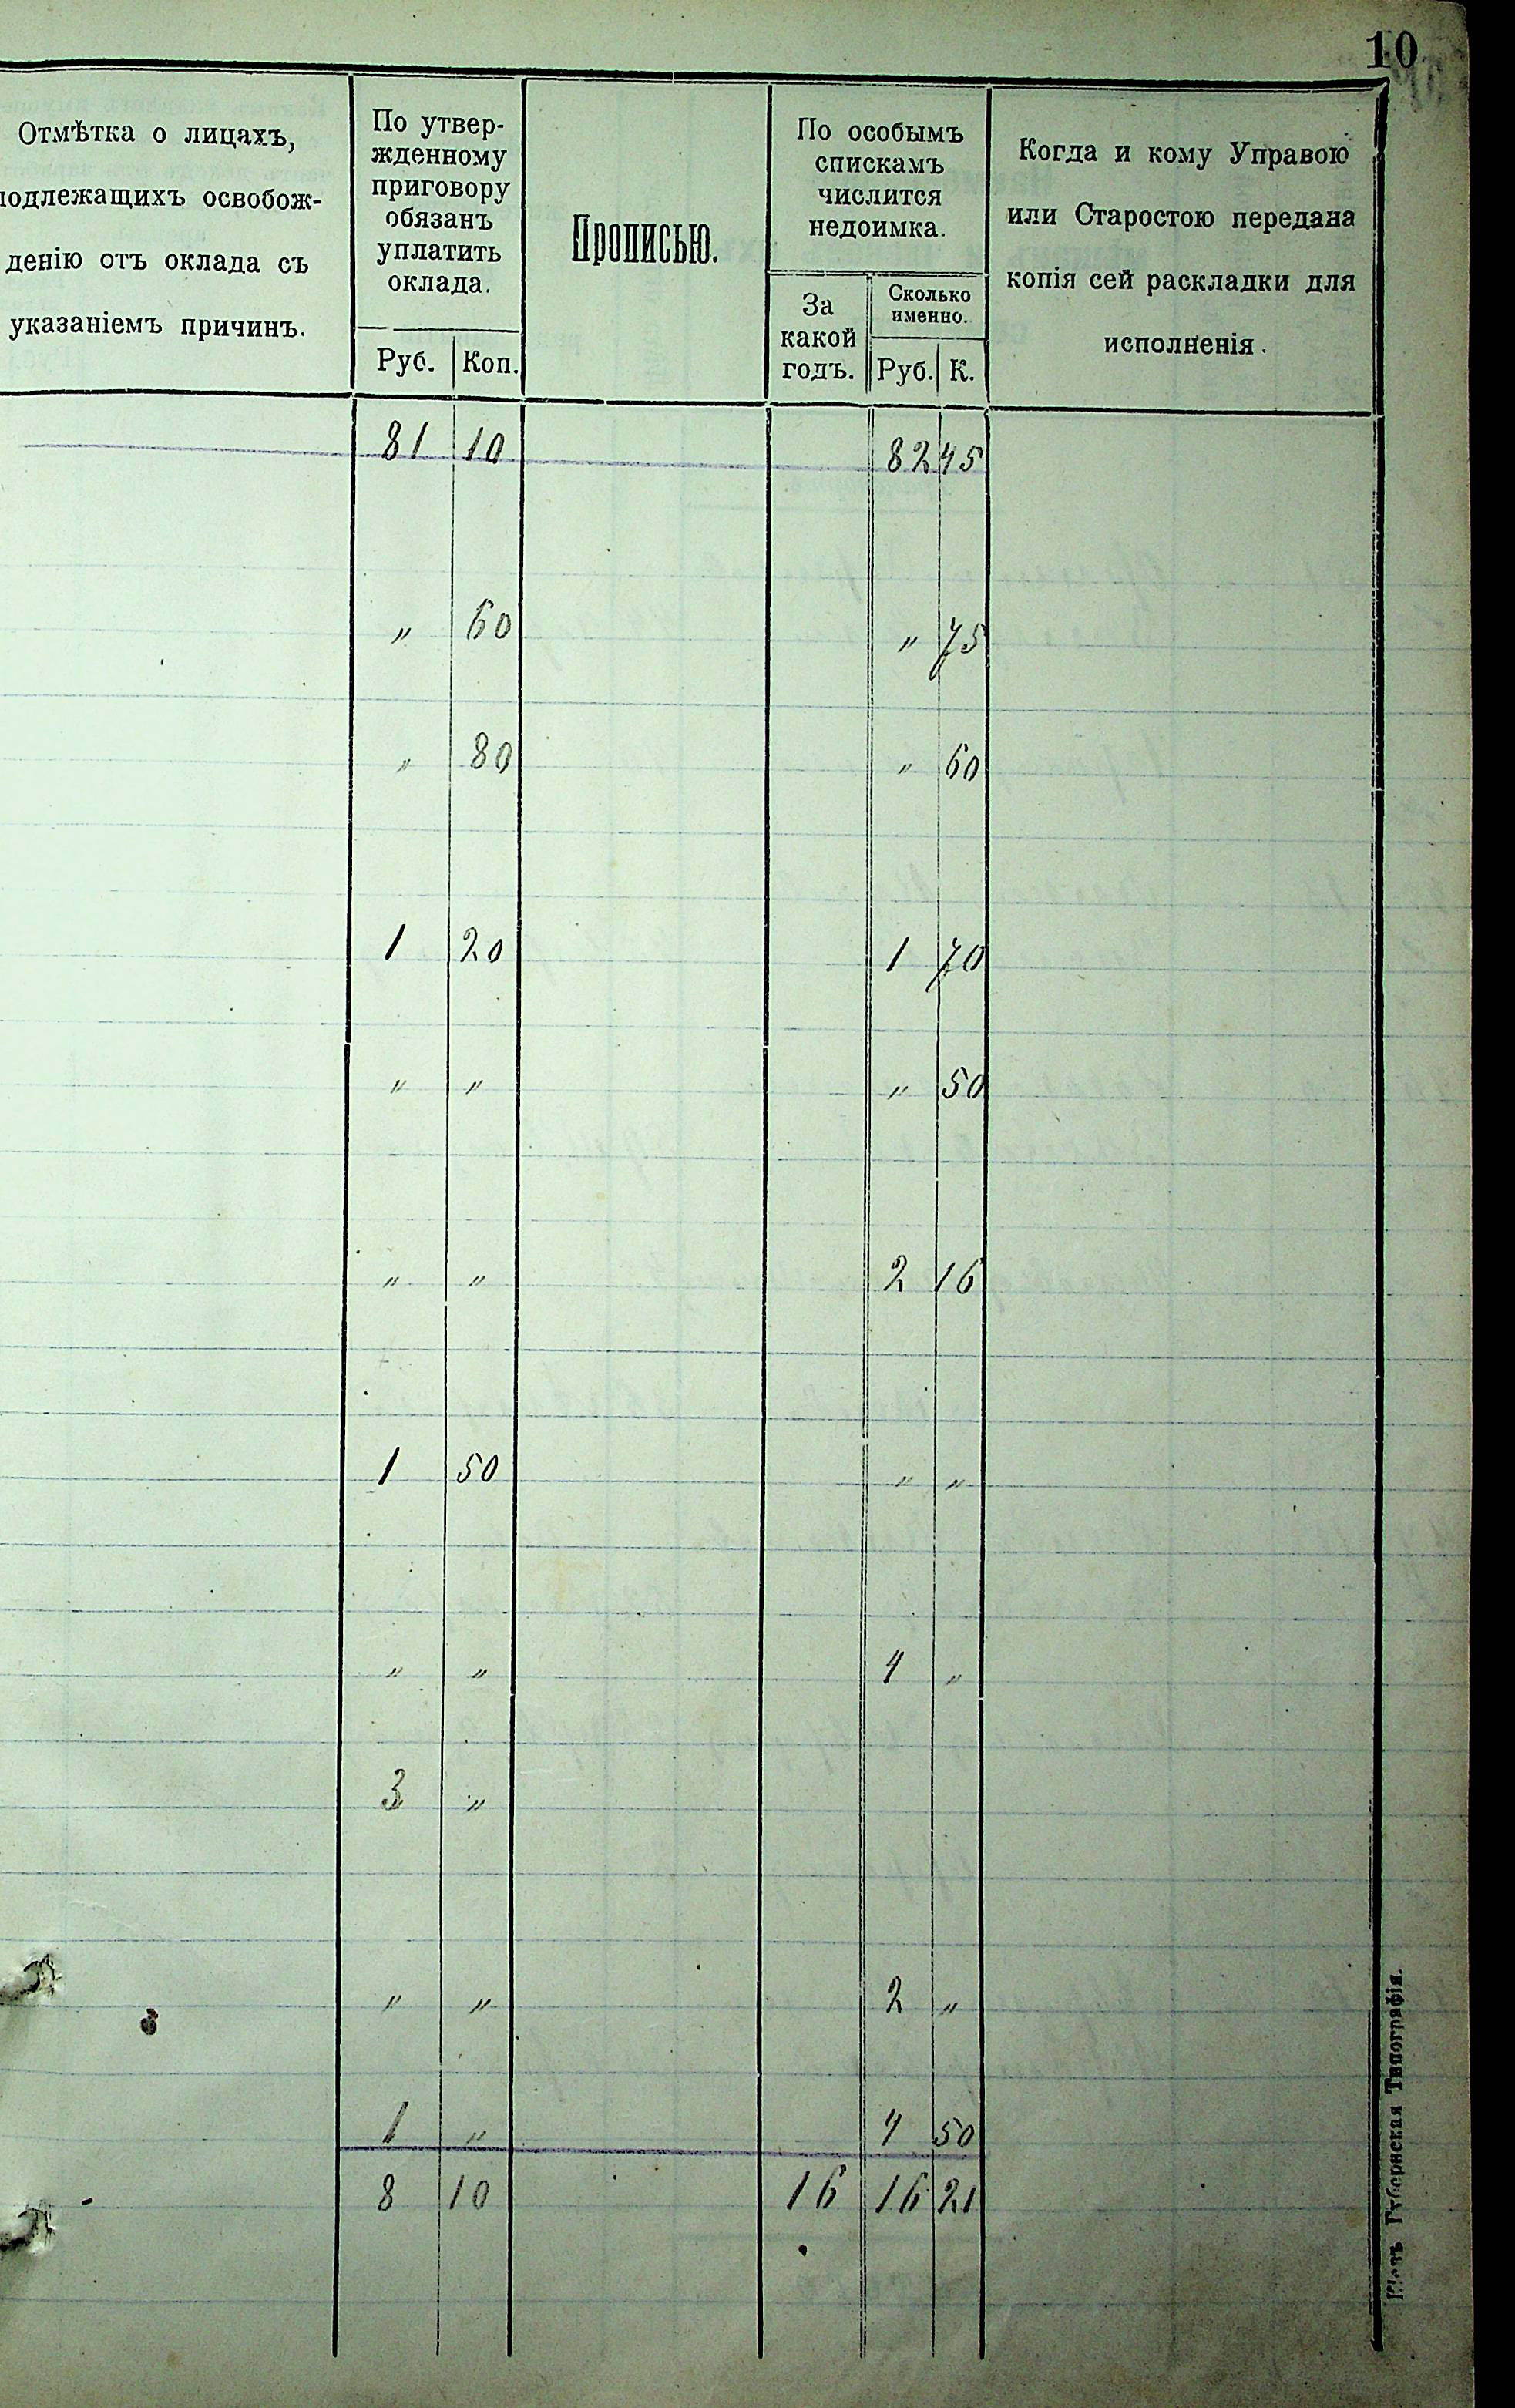 10
Отмѣтка о лицахъ,
подлежащихъ освобож-
денію отъ оклада съ
указаніемъ причинъ.
По утвер-
жденному
приговору
обязанъ
уплатить
оклада.
Руб. Коп.
Прописью.
По особымъ
спискамъ
числится
недоимка.
За
какой
годъ.
Сколько
именно.
Руб. К.
Когда и кому Управою
или Старостою передана
копія сей раскладки для
исполненія.
81 10 82 45
" 60 " 75
" 80 " 60
1 20 1 70
" " " 50
" " 2 16
1 50 " "
" " 4 "
3 "
" " 2 "
1 " 4 50
8 10 16 16 21
Кіевъ Губернская Типографія.